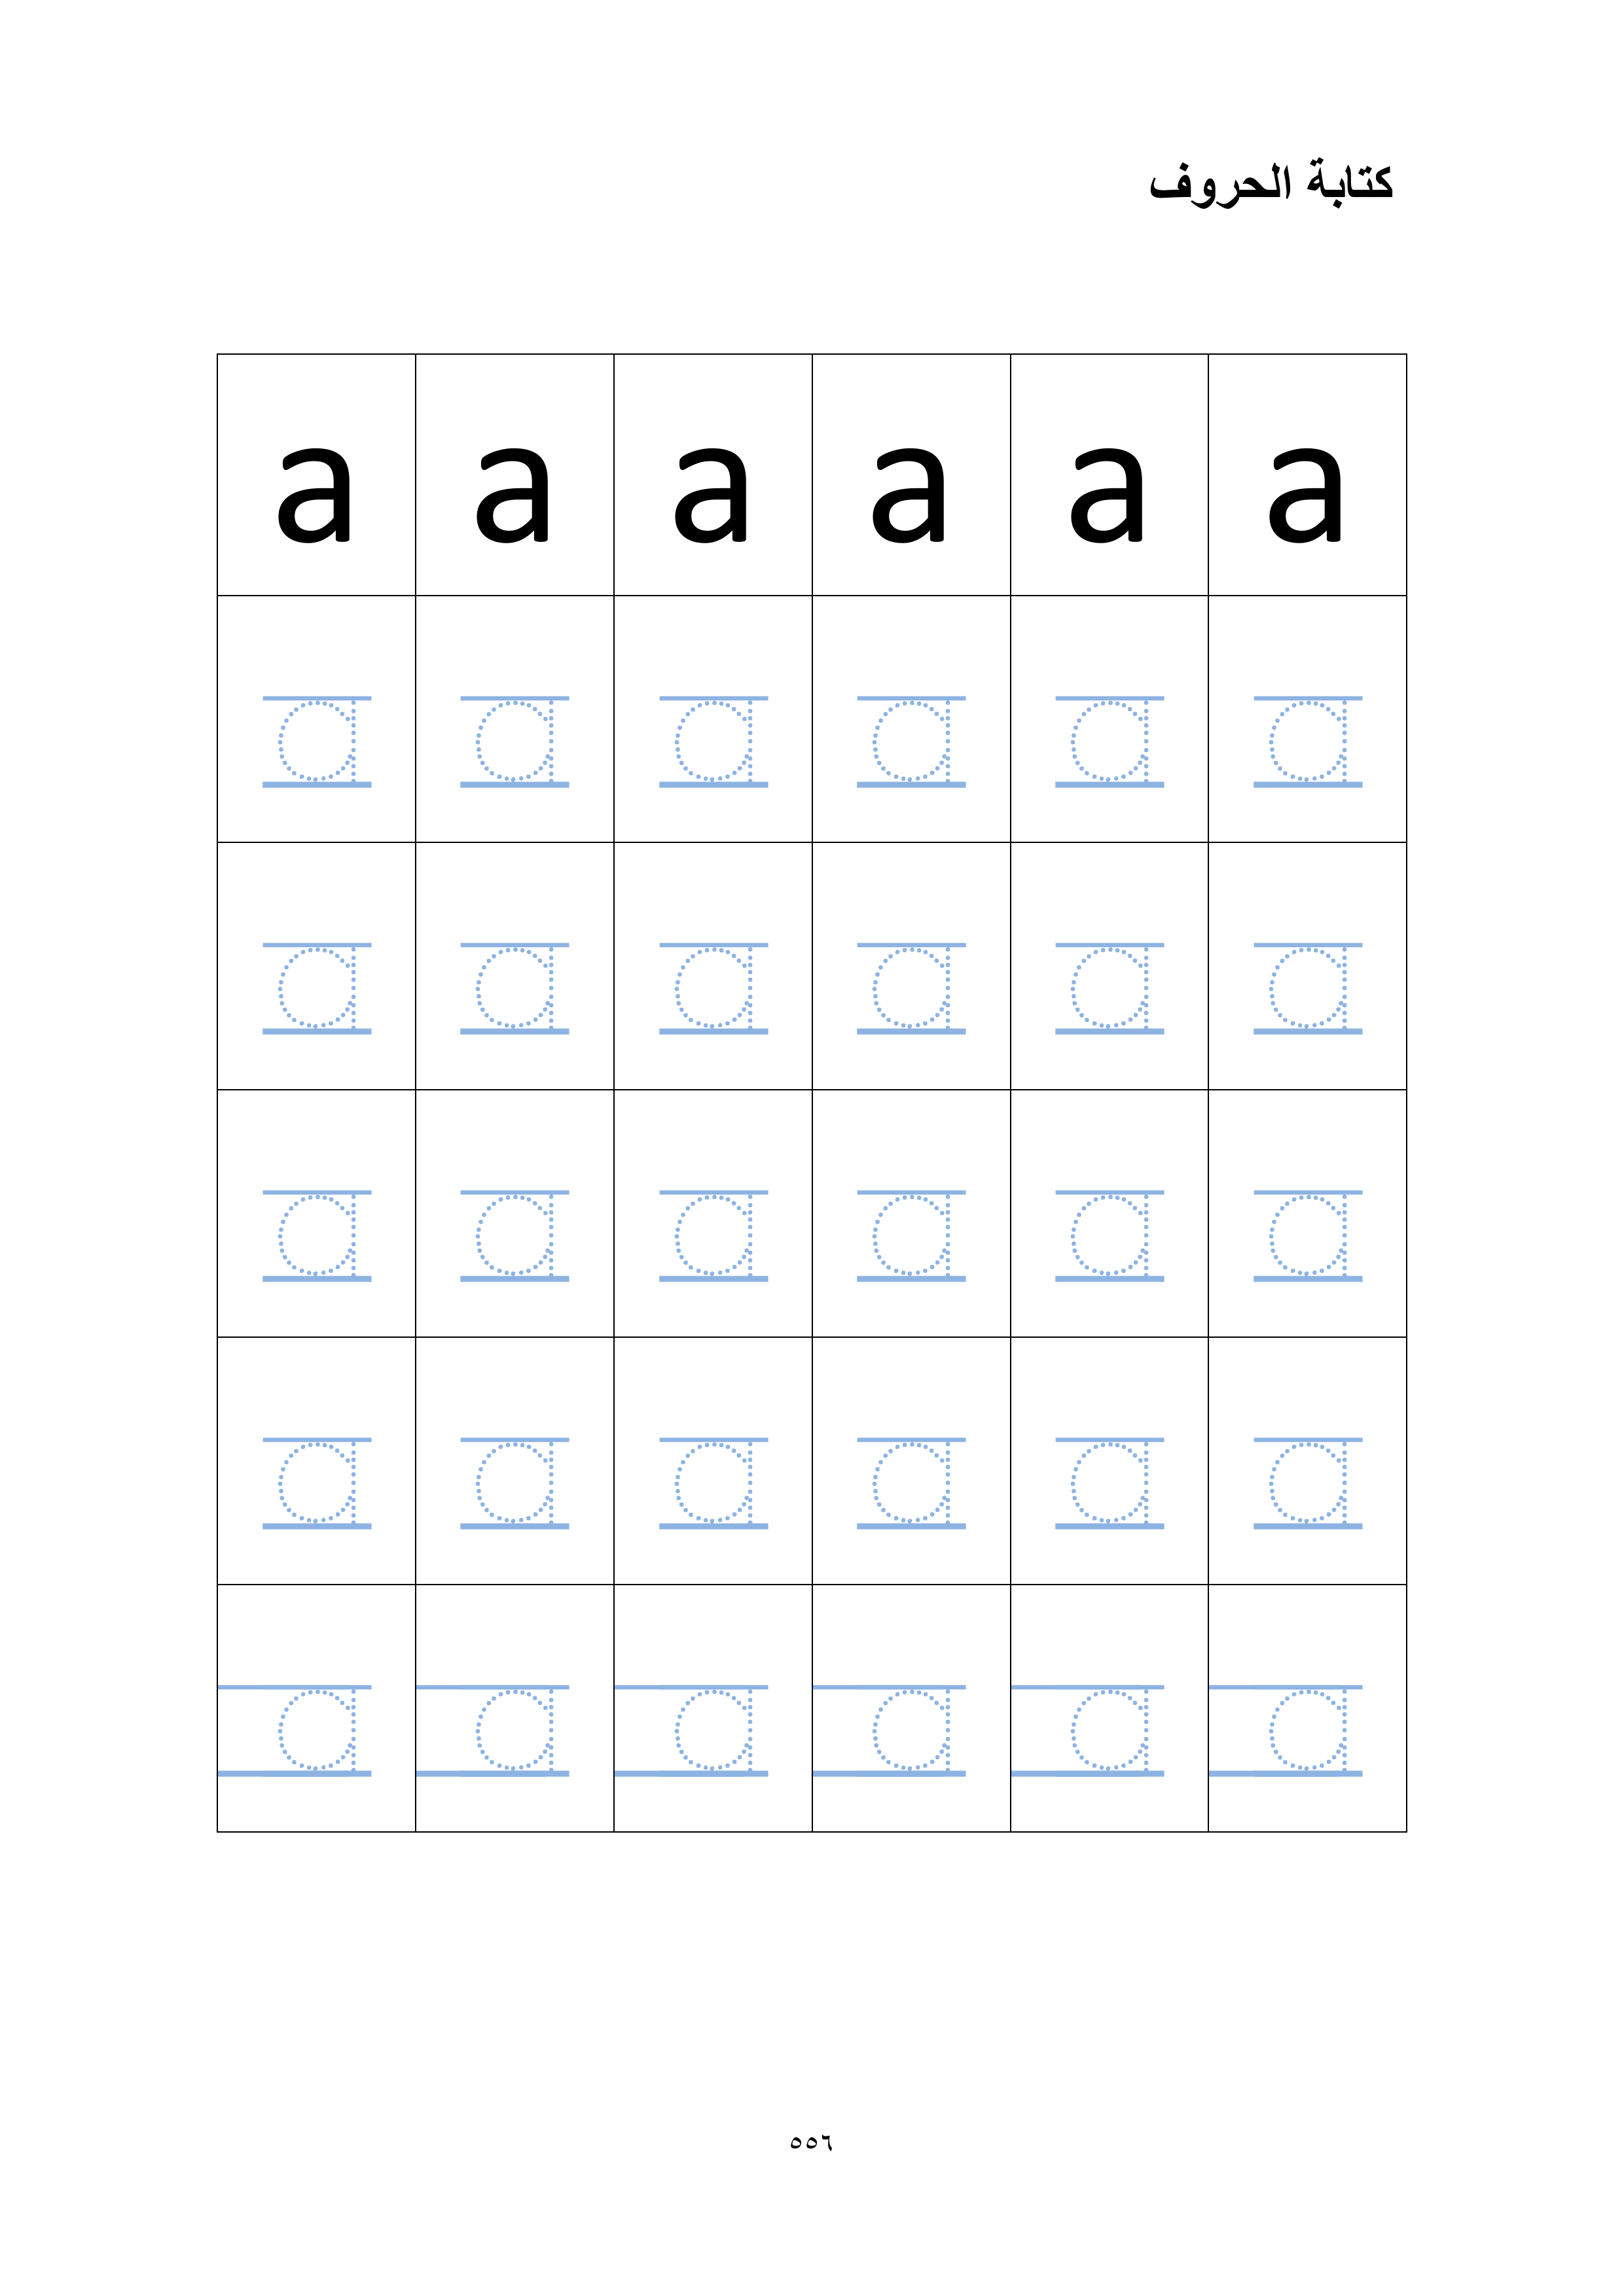 كتابة الحروف
a a a a a a
a a a a a a
a a a a a a
a a a a a a
a a a a a a
a a a a a a
٥٥٦